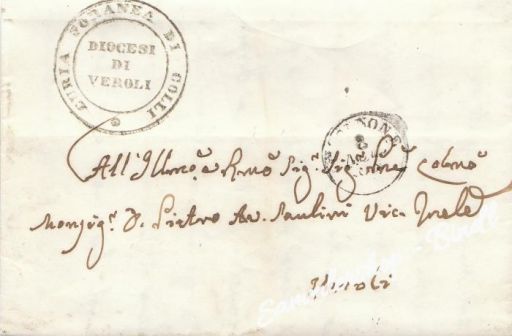 CURIA FORANEA DI COLLI
DIOCESI
DI
VEROLI
8
All' Illmo e Rmo Sig.r Sig.r Pne Colmo
Monsig.r D. Pietro Av. Paulini Vic. Gnele
Veroli